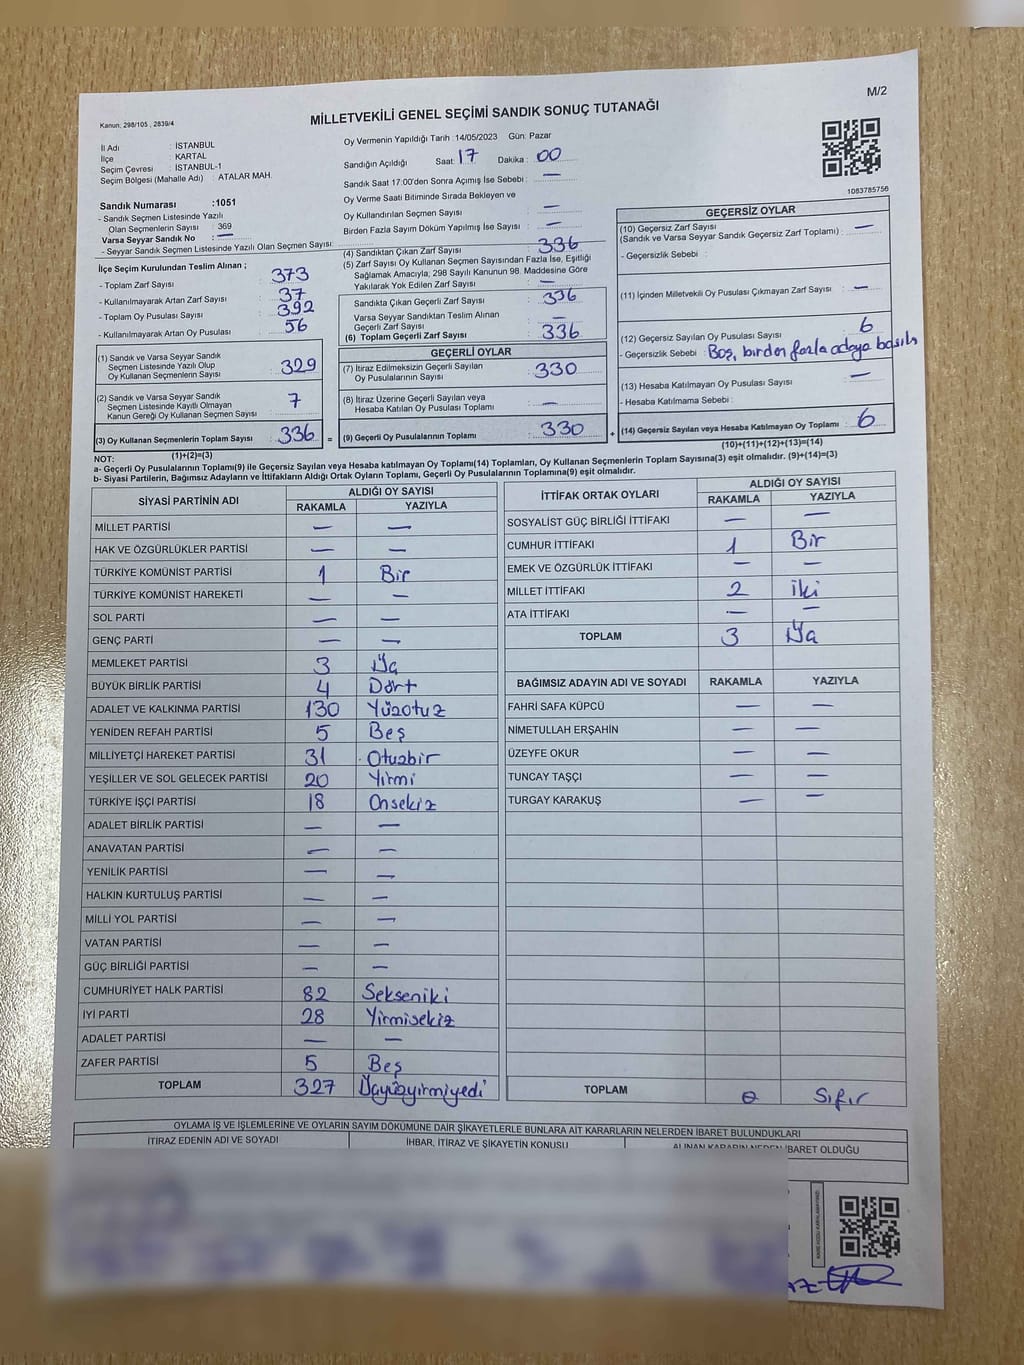 M/2
Kanun: 298/105 , 2839/4
MİLLETVEKİLİ GENEL SEÇİMİ SANDIK SONUÇ TUTANAĞI
İl Adı : İSTANBUL
İlçe : KARTAL
Seçim Çevresi : İSTANBUL-1
Seçim Bölgesi (Mahalle Adı) : ATALAR MAH.
Oy Vermenin Yapıldığı Tarih : 14/05/2023 Gün: Pazar
Sandığın Açıldığı Saat : 17 Dakika : 00
Sandık Saat 17:00'den Sonra Açımış İse Sebebi : —
Oy Verme Saati Bitiminde Sırada Bekleyen ve
Oy Kullandırılan Seçmen Sayısı : —
Birden Fazla Sayım Döküm Yapılmış İse Sayısı : —
1083785756
Sandık Numarası : 1051
- Sandık Seçmen Listesinde Yazılı
Olan Seçmenlerin Sayısı : 369
Varsa Seyyar Sandık No : —
- Seyyar Sandık Seçmen Listesinde Yazılı Olan Seçmen Sayısı:
İlçe Seçim Kurulundan Teslim Alınan ;
- Toplam Zarf Sayısı : 373
- Kullanılmayarak Artan Zarf Sayısı : 37
- Toplam Oy Pusulası Sayısı : 392
- Kullanılmayarak Artan Oy Pusulası : 56
(1) Sandık ve Varsa Seyyar Sandık
Seçmen Listesinde Yazılı Olup
Oy Kullanan Seçmenlerin Sayısı : 329
(2) Sandık ve Varsa Seyyar Sandık
Seçmen Listesinde Kayıtlı Olmayan
Kanun Gereği Oy Kullanan Seçmen Sayısı : 7
(3) Oy Kullanan Seçmenlerin Toplam Sayısı : 336 =
(1)+(2)=(3)
(4) Sandıktan Çıkan Zarf Sayısı : 336
(5) Zarf Sayısı Oy Kullanan Seçmen Sayısından Fazla İse, Eşitliği
Sağlamak Amacıyla, 298 Sayılı Kanunun 98. Maddesine Göre
Yakılarak Yok Edilen Zarf Sayısı : —
Sandıkta Çıkan Geçerli Zarf Sayısı : 336
Varsa Seyyar Sandıktan Teslim Alınan
Geçerli Zarf Sayısı : —
(6) Toplam Geçerli Zarf Sayısı : 336
GEÇERLİ OYLAR
(7) İtiraz Edilmeksizin Geçerli Sayılan
Oy Pusulalarının Sayısı : 330
(8) İtiraz Üzerine Geçerli Sayılan veya
Hesaba Katılan Oy Pusulası Toplamı : —
(9) Geçerli Oy Pusulalarının Toplamı : 330 +
GEÇERSİZ OYLAR
(10) Geçersiz Zarf Sayısı
(Sandık ve Varsa Seyyar Sandık Geçersiz Zarf Toplamı) : —
- Geçersizlik Sebebi :
(11) İçinden Milletvekili Oy Pusulası Çıkmayan Zarf Sayısı : —
(12) Geçersiz Sayılan Oy Pusulası Sayısı : 6
- Geçersizlik Sebebi : Boş, birden fazla adaya basılı
(13) Hesaba Katılmayan Oy Pusulası Sayısı : —
- Hesaba Katılmama Sebebi :
(14) Geçersiz Sayılan veya Hesaba Katılmayan Oy Toplamı : 6
(10)+(11)+(12)+(13)=(14)
NOT:
a- Geçerli Oy Pusulalarının Toplamı(9) ile Geçersiz Sayılan veya Hesaba katılmayan Oy Toplamı(14) Toplamları, Oy Kullanan Seçmenlerin Toplam Sayısına(3) eşit olmalıdır. (9)+(14)=(3)
b- Siyasi Partilerin, Bağımsız Adayların ve İttifakların Aldığı Ortak Oyların Toplamı, Geçerli Oy Pusulalarının Toplamına(9) eşit olmalıdır.
SİYASİ PARTİNİN ADI ALDIĞI OY SAYISI
RAKAMLA YAZIYLA
MİLLET PARTİSİ — —
HAK VE ÖZGÜRLÜKLER PARTİSİ — —
TÜRKİYE KOMÜNİST PARTİSİ 1 Bir
TÜRKİYE KOMÜNİST HAREKETİ — —
SOL PARTİ — —
GENÇ PARTİ — —
MEMLEKET PARTİSİ 3 Üç
BÜYÜK BİRLİK PARTİSİ 4 Dört
ADALET VE KALKINMA PARTİSİ 130 Yüzotuz
YENİDEN REFAH PARTİSİ 5 Beş
MİLLİYETÇİ HAREKET PARTİSİ 31 Otuzbir
YEŞİLLER VE SOL GELECEK PARTİSİ 20 Yirmi
TÜRKİYE İŞÇİ PARTİSİ 18 Onsekiz
ADALET BİRLİK PARTİSİ — —
ANAVATAN PARTİSİ — —
YENİLİK PARTİSİ — —
HALKIN KURTULUŞ PARTİSİ — —
MİLLİ YOL PARTİSİ — —
VATAN PARTİSİ — —
GÜÇ BİRLİĞİ PARTİSİ — —
CUMHURİYET HALK PARTİSİ 82 Sekseniki
İYİ PARTİ 28 Yirmisekiz
ADALET PARTİSİ — —
ZAFER PARTİSİ 5 Beş
TOPLAM 327 Üçyüzyirmiyedi
İTTİFAK ORTAK OYLARI ALDIĞI OY SAYISI
RAKAMLA YAZIYLA
SOSYALİST GÜÇ BİRLİĞİ İTTİFAKI — —
CUMHUR İTTİFAKI 1 Bir
EMEK VE ÖZGÜRLÜK İTTİFAKI — —
MİLLET İTTİFAKI 2 İki
ATA İTTİFAKI — —
TOPLAM 3 Üç
BAĞIMSIZ ADAYIN ADI VE SOYADI RAKAMLA YAZIYLA
FAHRİ SAFA KÜPCÜ — —
NİMETULLAH ERŞAHİN — —
ÜZEYFE OKUR — —
TUNCAY TAŞÇI — —
TURGAY KARAKUŞ — —
TOPLAM 0 Sıfır
OYLAMA İŞ VE İŞLEMLERİNE VE OYLARIN SAYIM DÖKÜMÜNE DAİR ŞİKAYETLERLE BUNLARA AİT KARARLARIN NELERDEN İBARET BULUNDUKLARI
İTİRAZ EDENİN ADI VE SOYADI İHBAR, İTİRAZ VE ŞİKAYETİN KONUSU ALINAN KARARIN NEDEN İBARET OLDUĞU